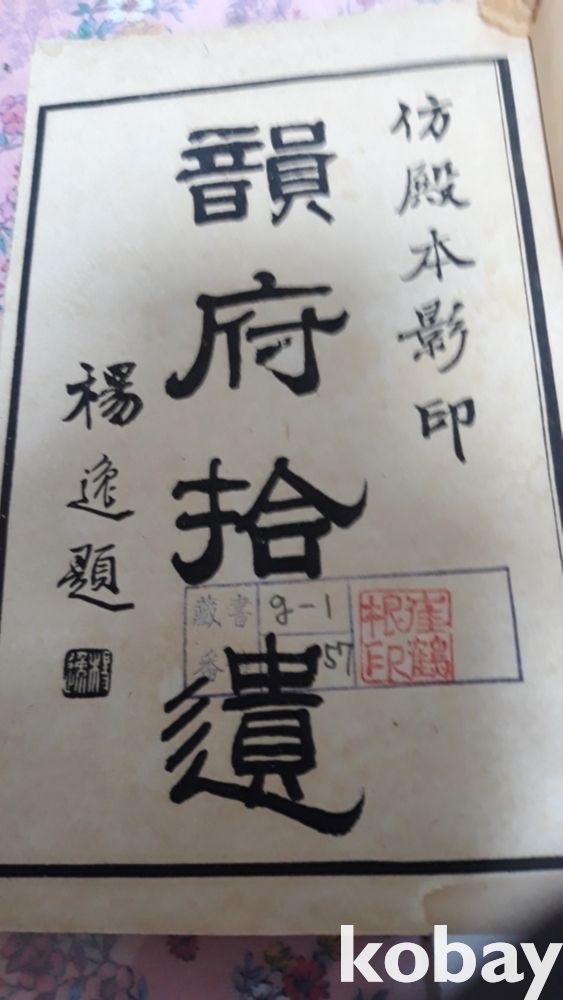 仿殿本影印
韻府拾遺
楊逸題
楊逸
藏書
番
g-1
57
崔鶴
根印
kobay